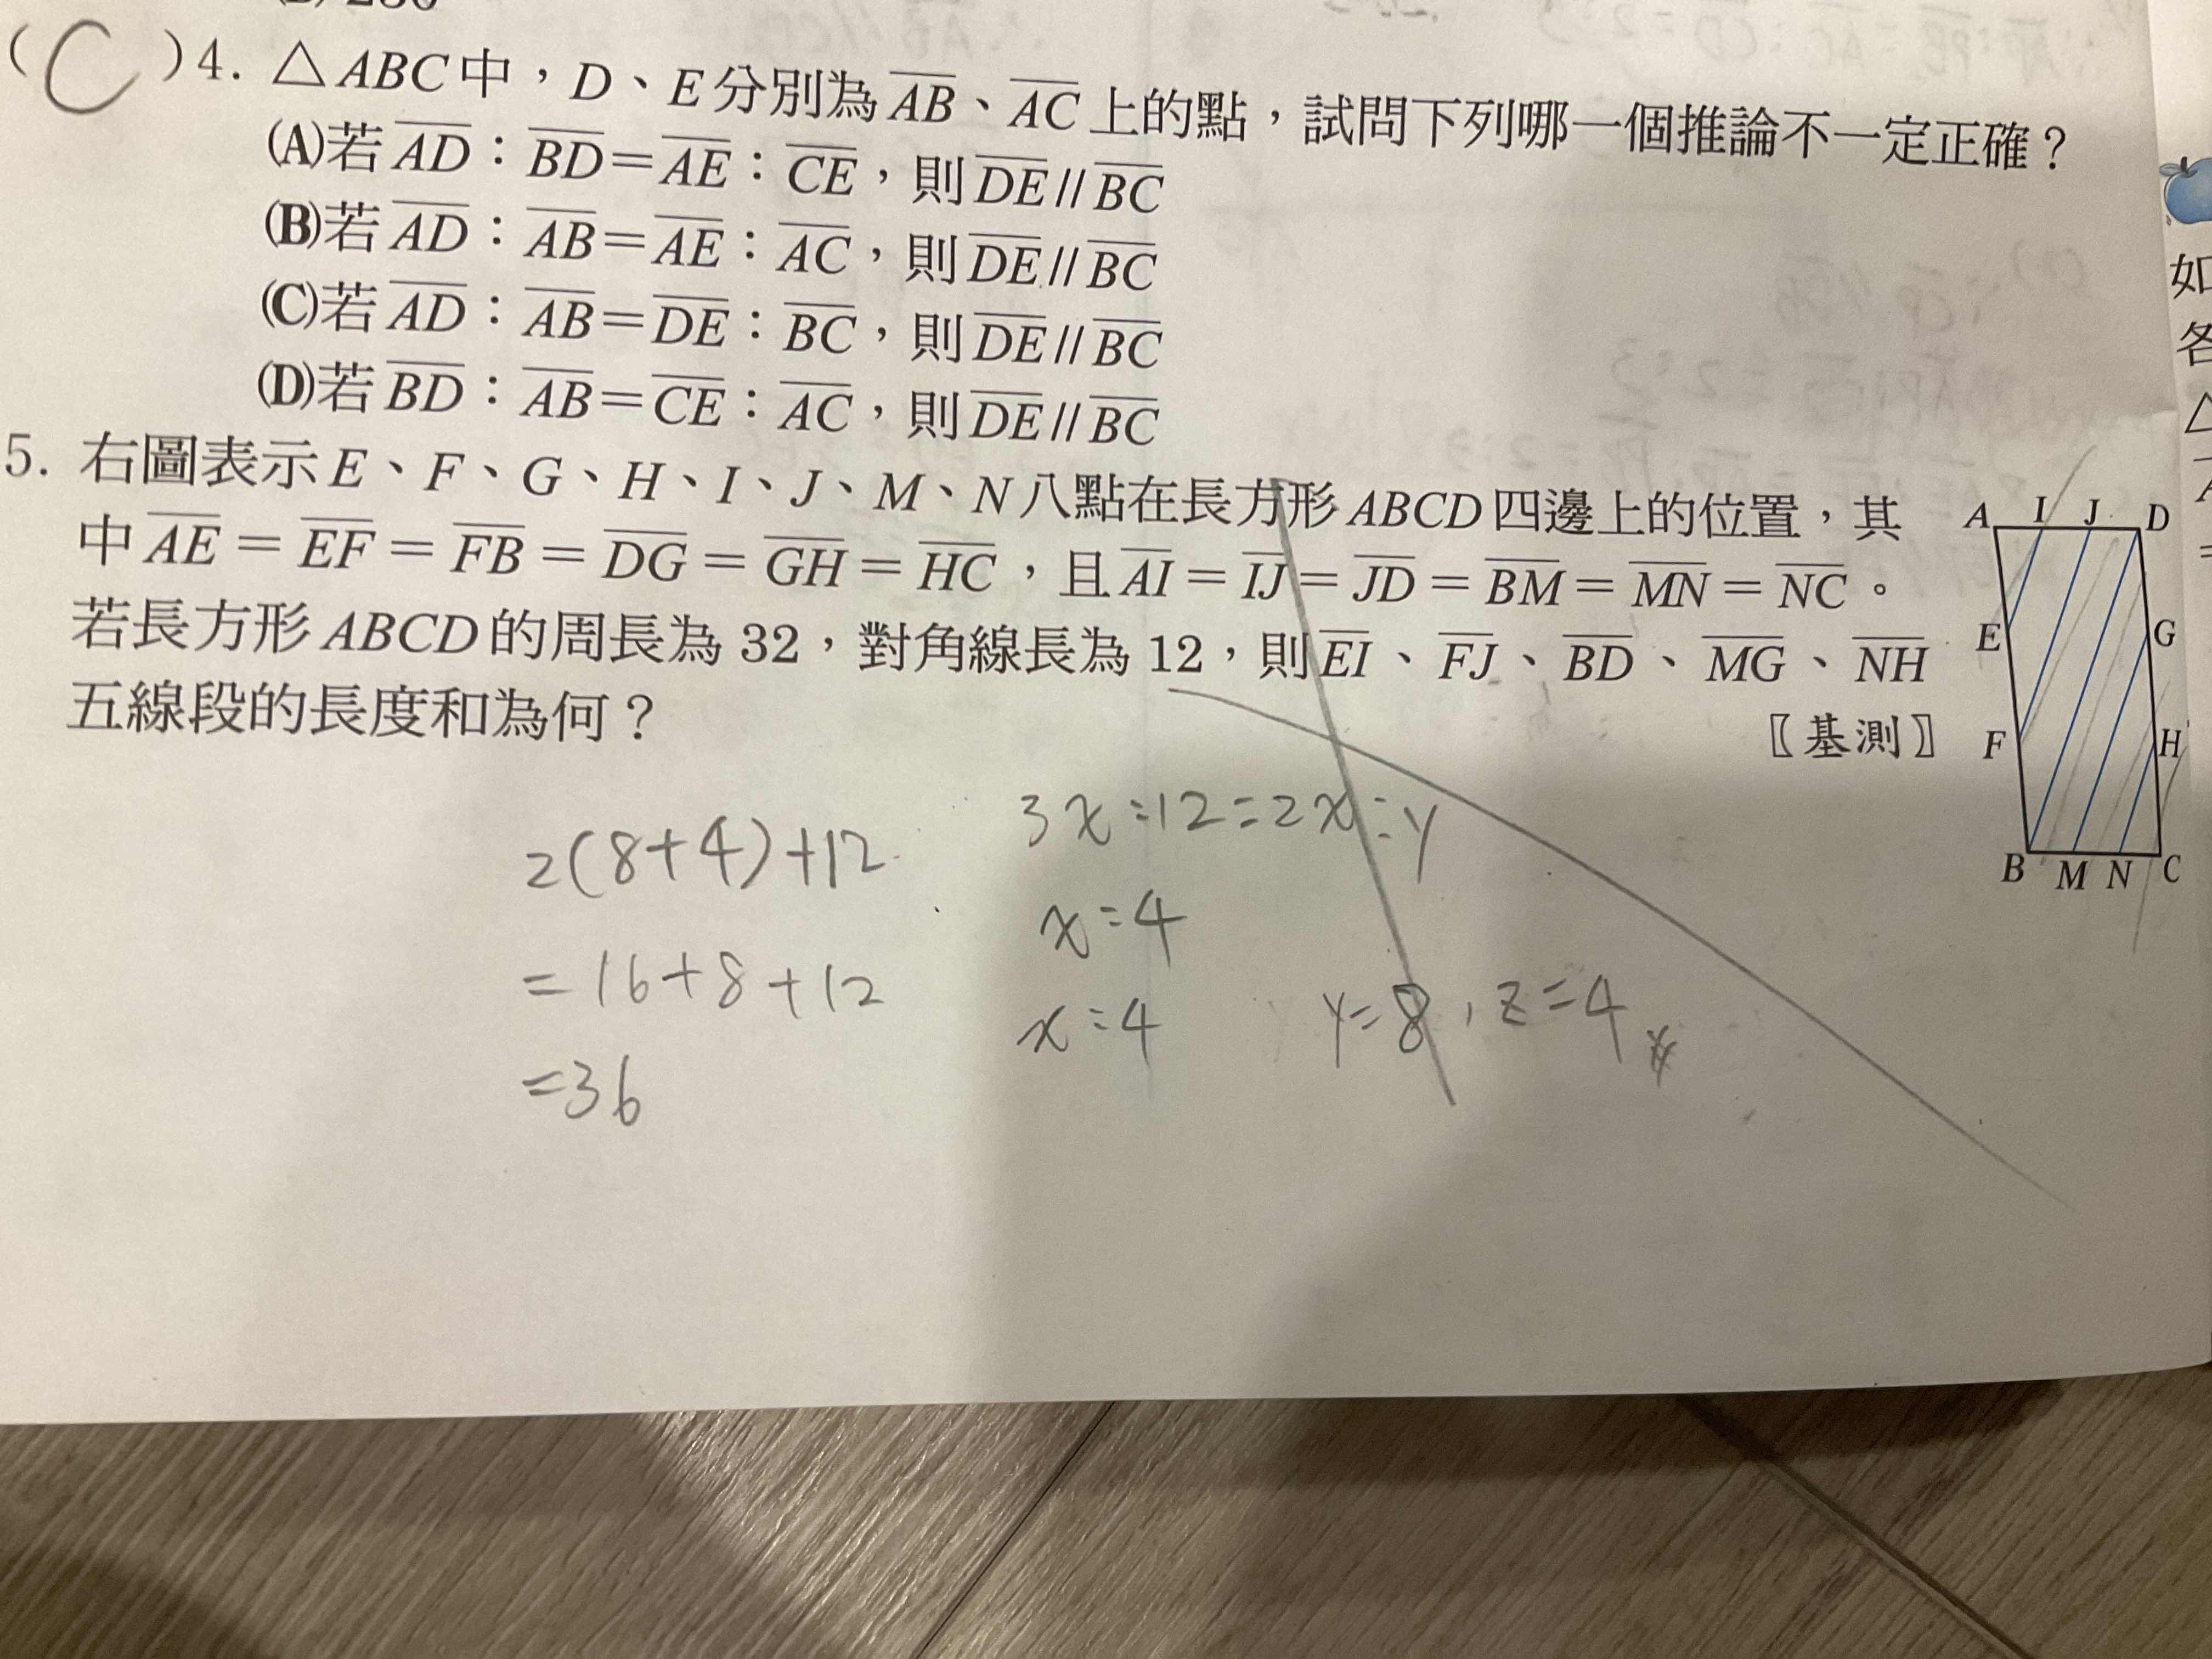 (C)4. △ABC中，D、E分別為AB、AC上的點，試問下列哪一個推論不一定正確？
(A)若AD：BD＝AE：CE，則DE//BC
(B)若AD：AB＝AE：AC，則DE//BC
(C)若AD：AB＝DE：BC，則DE//BC
(D)若BD：AB＝CE：AC，則DE//BC
5. 右圖表示E、F、G、H、I、J、M、N八點在長方形ABCD四邊上的位置，其
中AE＝EF＝FB＝DG＝GH＝HC，且AI＝IJ＝JD＝BM＝MN＝NC。
若長方形ABCD的周長為32，對角線長為12，則EI、FJ、BD、MG、NH
五線段的長度和為何？
〖基測〗
A I J D
E G
F H
B M N C
2(8+4)+12
=16+8+12
=36
3x:12=2x:y
x=4
x=4 y=8, z=4
如
各